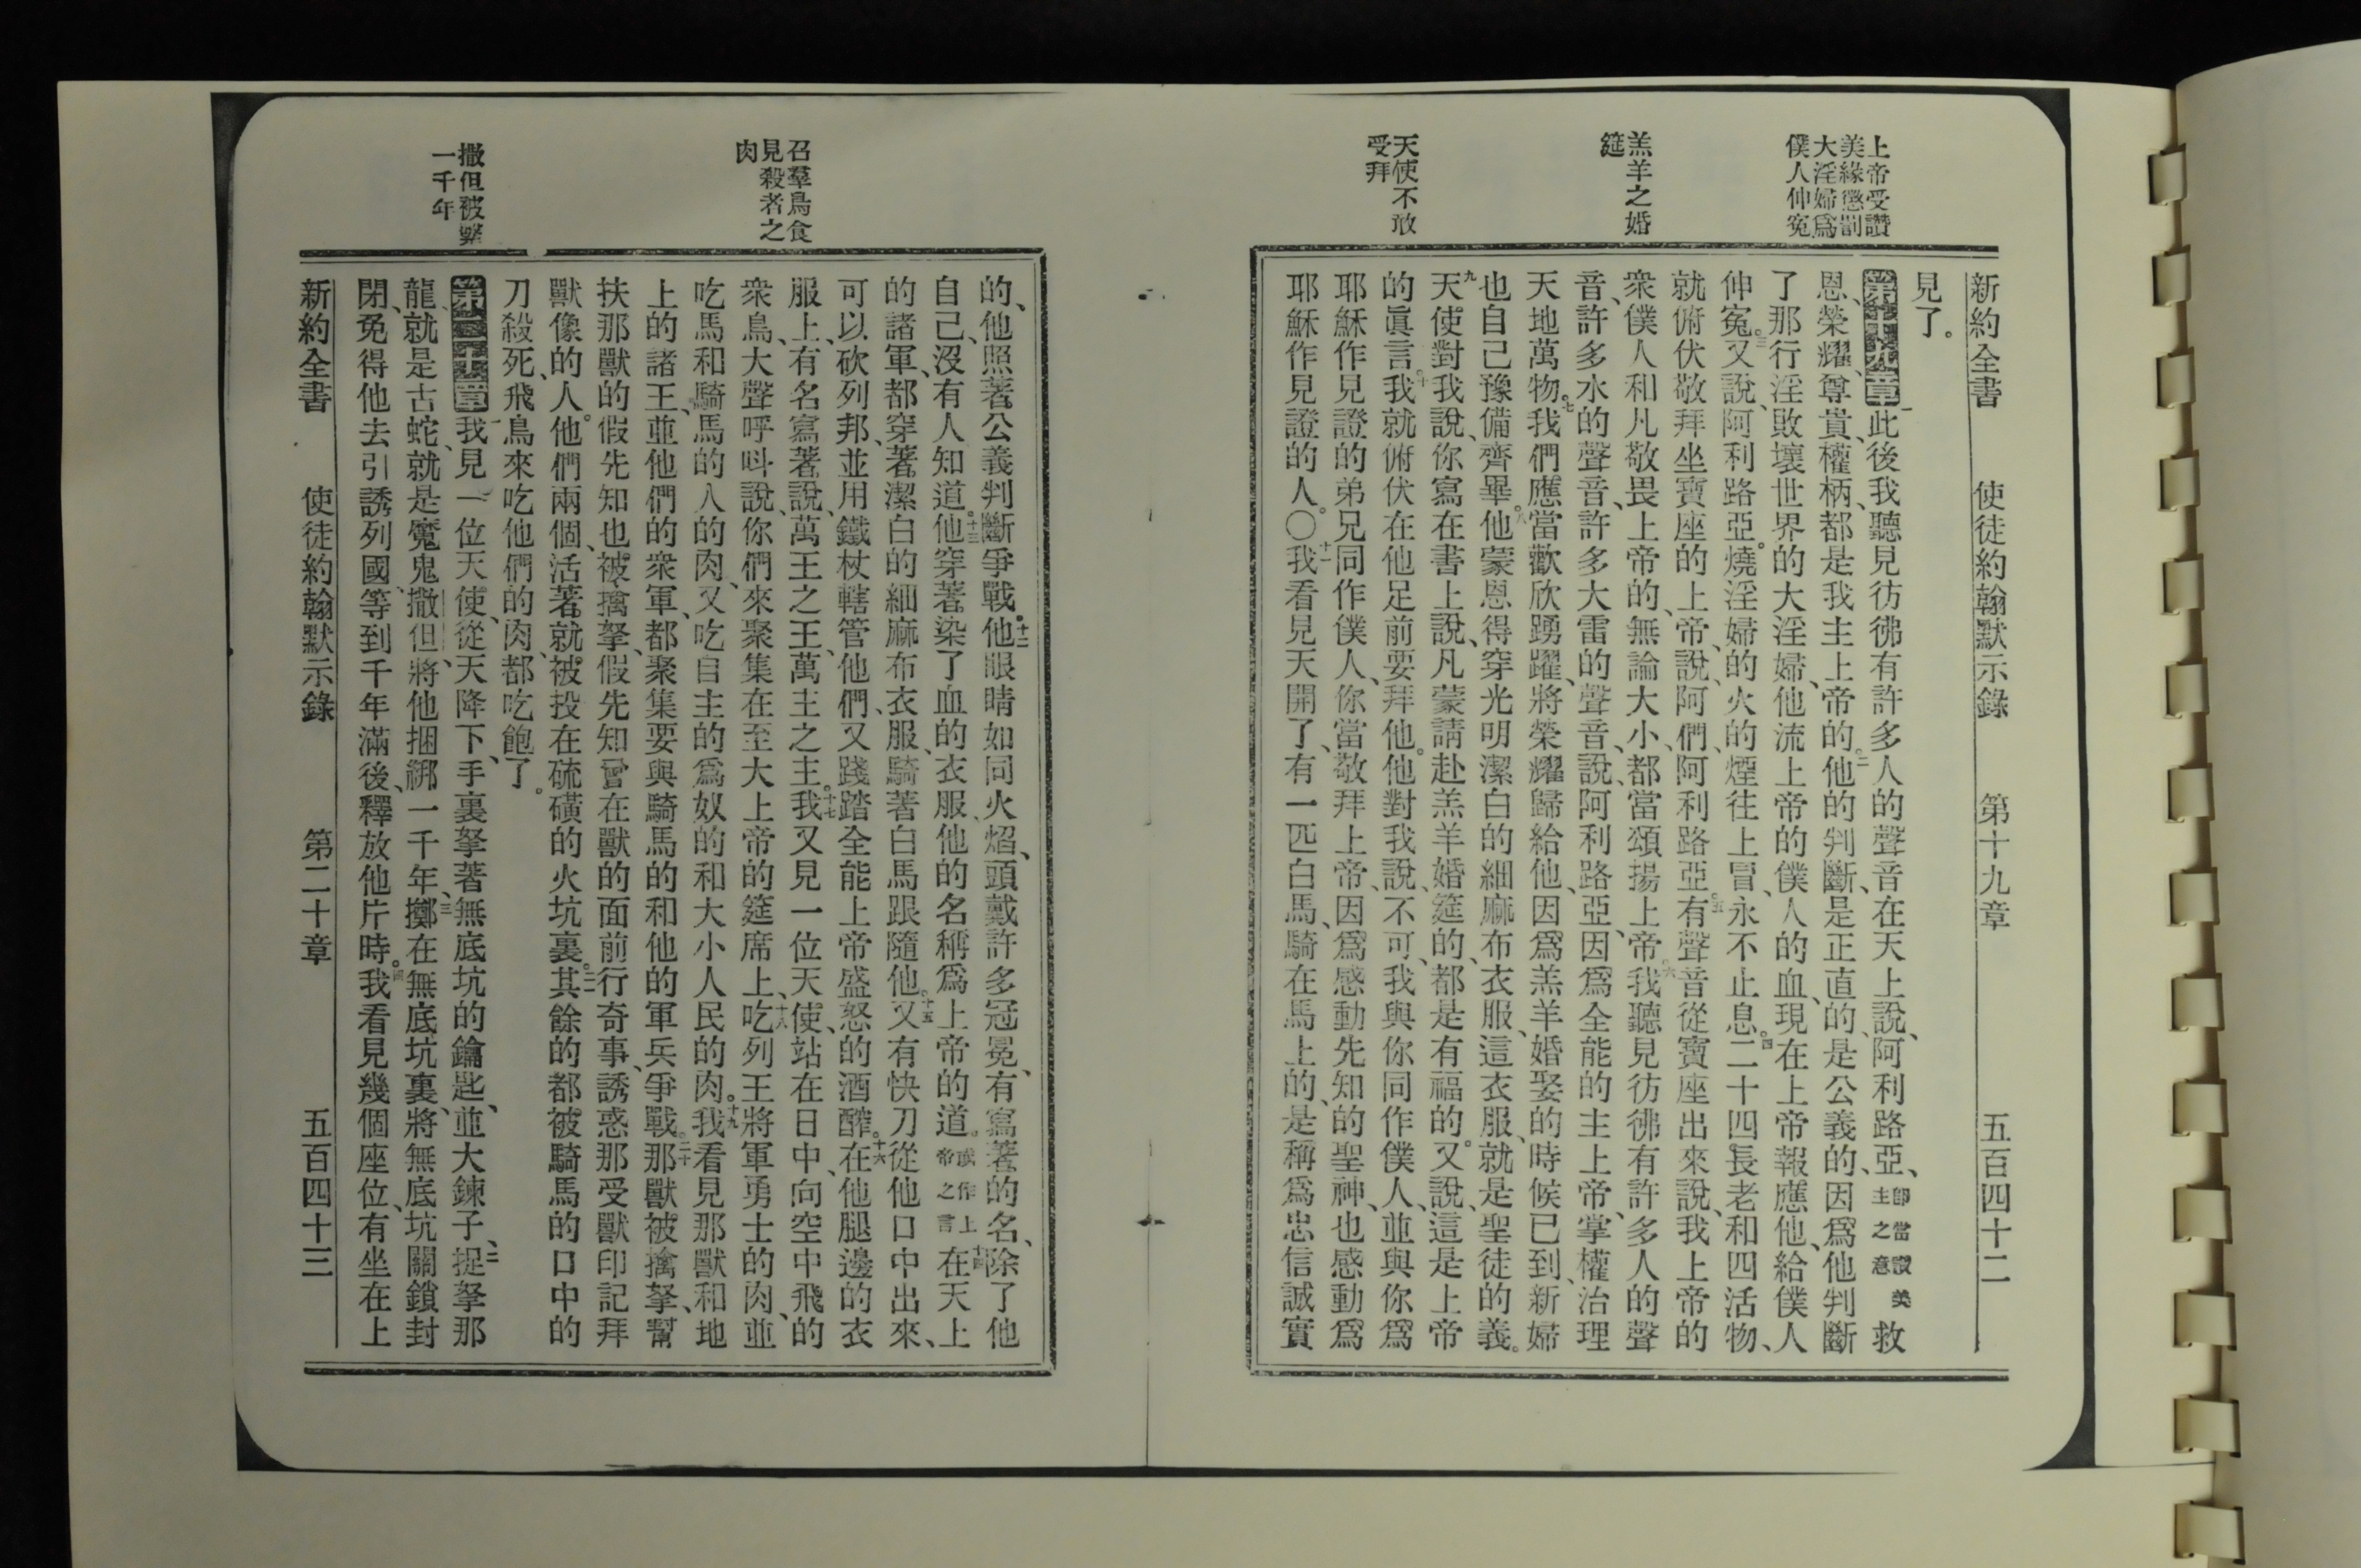 上帝受讚
美緣懲罰
大淫婦爲
僕人伸冤
羔羊之婚
筵
天使不敢
受拜
新約全書 使徒約翰默示錄 第十九章 五百四十二
見了。
第十九章 一此後我聽見彷彿有許多人的聲音在天上說、阿利路亞、卽當讚美主之意救
恩、榮耀、尊貴、權柄、都是我主上帝的。二他的判斷、是正直的、是公義的、因爲他判斷
了那行淫敗壞世界的大淫婦、他流上帝的僕人的血、現在上帝報應他、給僕人
伸冤。三又說、阿利路亞。燒淫婦的火的煙往上冒、永不止息。四二十四長老和四活物、
就俯伏敬拜坐寶座的上帝、說、阿們、阿利路亞。五有聲音從寶座出來說、我上帝的
衆僕人和凡敬畏上帝的、無論大小、都當頌揚上帝。六我聽見彷彿有許多人的聲
音、許多水的聲音、許多大雷的聲音、說、阿利路亞、因爲全能的主上帝、掌權治理
天地萬物。七我們應當歡欣踴躍、將榮耀歸給他、因爲羔羊婚娶的時候已到、新婦
也自己豫備齊畢。八他蒙恩得穿光明潔白的細麻布衣服、這衣服、就是聖徒的義。
九天使對我說、你寫在書上說、凡蒙請赴羔羊婚筵的、都是有福的。又說、這是上帝
的眞言。十我就俯伏在他足前要拜他。他對我說、不可、我與你同作僕人、並與你爲
耶穌作見證的弟兄同作僕人、你當敬拜上帝、因爲感動先知的聖神、也感動爲
耶穌作見證的人。〇十一我看見天開了、有一匹白馬、騎在馬上的、是稱爲忠信誠實
召羣鳥食
見殺者之
肉
撒但被繫
一千年
的、他照著公義判斷爭戰。十二他眼睛如同火焰、頭戴許多冠冕、有寫著的名、除了他
自己、沒有人知道。十三他穿著染了血的衣服、他的名稱爲上帝的道。或作上帝之言十四在天上
的諸軍、都穿著潔白的細麻布衣服、騎著白馬跟隨他。十五又有快刀從他口中出來、
可以砍列邦、並用鐵杖轄管他們、又踐踏全能上帝盛怒的酒醡。十六在他腿邊的衣
服上、有名寫著說、萬王之王、萬主之主。十七我又見一位天使、站在日中、向空中飛的
衆鳥、大聲呼呌說、你們來聚集在至大上帝的筵席上、十八吃列王將軍勇士的肉、並
吃馬和騎馬的人的肉、又吃自主的爲奴的和大小人民的肉。十九我看見那獸和地
上的諸王、並他們的衆軍、都聚集要與騎馬的和他的軍兵爭戰。二十那獸被擒拏、幫
扶那獸的假先知也被擒拏、假先知曾在獸的面前行奇事、誘惑那受獸印記拜
獸像的人。他們兩個、活著就被投在硫磺的火坑裏。二一其餘的都被騎馬的口中的
刀殺死、飛鳥來吃他們的肉、都吃飽了。
第二十章 一我見一位天使、從天降下、手裏拏著無底坑的鑰匙、並大鍊子、二捉拏那
龍、就是古蛇、就是魔鬼撒但、將他捆綁一千年、三擲在無底坑裏、將無底坑關鎖封
閉、免得他去引誘列國、等到千年滿後、釋放他片時。四我看見幾個座位、有坐在上
新約全書 使徒約翰默示錄 第二十章 五百四十三